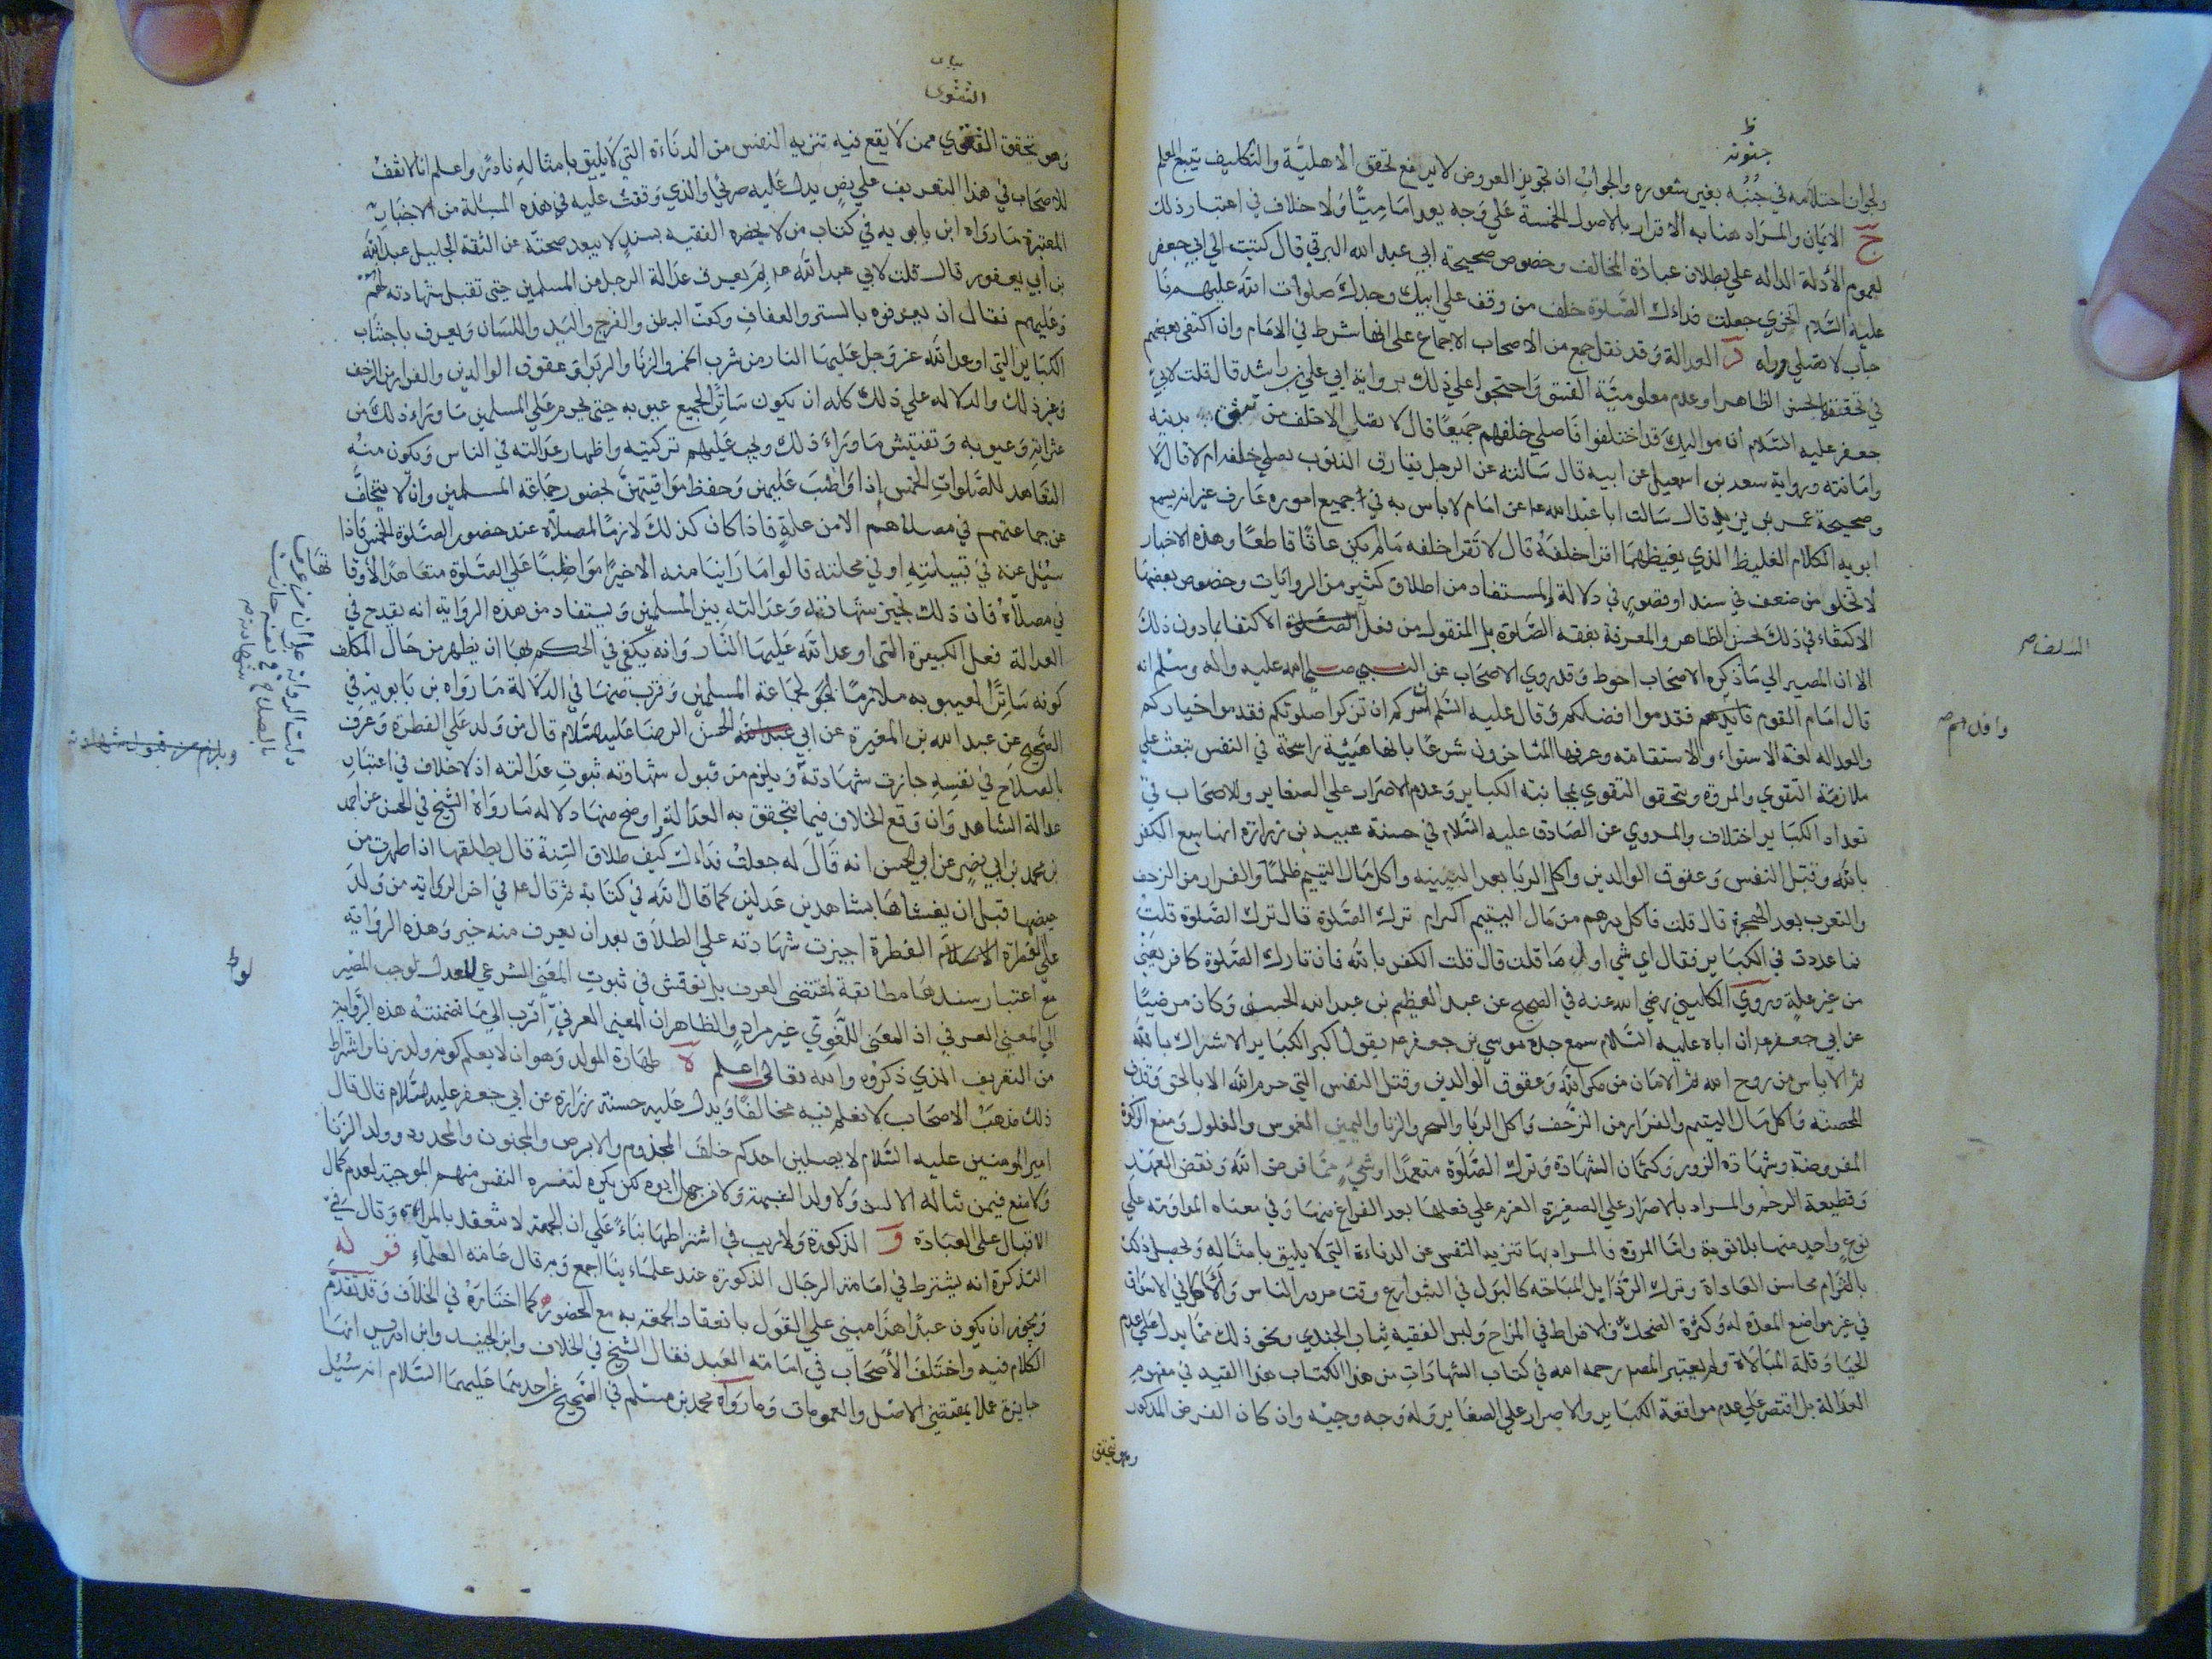 جنونه
ولجواز احتلامه في جنبه بغير شعوره والجواب ان تجويز العروض لا يرفع تحقق الاهلية والتكليف يتبع العلم
ج الايمان والمراد هنا به الاقرار بالاصول الخمسة علي وجه يعد اماميا ولا خلاف في اعتبار ذلك
لعموم الأدلة الداله علي بطلان عبادة المخالف وخصوص صحيحة ابي عبد الله البرقي قال كتبت الي ابي جعفر
عليه السلام ايجوزي جعلت فداءك الصلوة خلف من وقف علي ابيك وجدك صلوات الله عليهم
جاب لا تصلي وراه د العدالة وقد نقل جمع من الأصحاب الاجماع على انها شرط في الامام وان اكتفى بعضهم
في تحققها بحسن الظاهر او عدم معلومية الفسق واحتجوا علي ذلك برواية ابي علي بن راشد قال قلت لابي
جعفر عليه السلام ان مواليك قد اختلفوا فاصلي خلفهم جميعا قال لا تصل الا خلف من تثق بدينه
وامانته ورواية سعد بن اسمعيل عن ابيه قال سالته عن الرجل يقارف الذنوب يصلي خلفه ام لا قال لا
وصحيحة عمر بن يزيد قال سالت ابا عبد الله عه عن امام لا باس به في جميع اموره عارف غير انه يسمع
ابويه الكلام الغليظ الذي يغيظهما اقرا خلفه قال لا تقرا خلفه ما لم يكن عاقا قاطعا وهذه الاخبار
لا تخلو من ضعف في سند او قصور في دلالة والمستفاد من اطلاق كثير من الروايات وخصوص بعضها
الاكتفاء في ذلك بحسن الظاهر والمعرفة بفقه الصلوة بل المنقول من فعل الصلوة الاكتفا بما دون ذلك
السلف صح
الا ان المصير الي ما ذكره الاصحاب احوط وقد روي الاصحاب عن النبي صلي الله عليه واله وسلم انه
قال امام القوم قايدهم فقدموا افضلكم وقال عليه السلم ان سركم ان تزكوا صلوتكم فقدموا اخياركم
وافدهم صح
والعداله لغة الاستواء والاستقامة وعرفها المتاخرون شرعا بانها هيئة راسخة في النفس تبعث علي
ملازمة التقوي والمروة ويتحقق التقوي بمجانبة الكباير وعدم الاصرار علي الصغاير وللاصحاب في
تعداد الكباير اختلاف والمروي عن الصادق عليه السلام في حسنة عبيد بن زرارة انها سبع الكفر
بالله وقتل النفس وعقوق الوالدين واكل الربا بعد البينه واكل مال اليتيم ظلما والفرار من الزحف
والتعرب بعد الهجرة قال قلت فاكل درهم من مال اليتيم اكبر ام ترك الصلوة قال ترك الصلوة قلت
فما عددت في الكباير فقال اي شي اول ما قلت قال قلت الكفر بالله فان تارك الصلوة كافر يعني
من غير علة وروي الكليني رضي الله عنه في الصحيح عن عبد العظيم بن عبد الله الحسني وكان مرضيا
عن ابي جعفر عه ان اباه عليه السلام سمع جده موسي بن جعفر عه يقول اكبر الكباير الاشراك بالله
ثم الاياس من روح الله ثم الامان من مكر الله وعقوق الوالدين وقتل النفس التي حرم الله الا بالحق وقذف
المحصنة واكل مال اليتيم والفرار من الزحف واكل الربا والسحر والزنا واليمين الغموس والغلول ومنع الزكوة
المفروضة وشهادة الزور وكتمان الشهادة وترك الصلوة متعمدا او شيء مما فرض الله ونقض العهد
وقطيعة الرحم والمراد بالاصرار علي الصغيرة العزم علي فعلها بعد الفراغ منها وفي معناه المداومة علي
نوع واحد منها بلا توبة واما المروة فالمراد بها تنزيه النفس عن الدناءة التي لا يليق بامثاله ويحصل ذلك
بالتزام محاسن العادات وترك الرذايل المباحة كالبول في الشوارع وقت مرور الناس والاكل في الاسواق
في غير مواضع المعدة له وكثرة الضحك والافراط في المزاح ولبس الفقيه ثياب الجندي ونحو ذلك مما يدل علي عدم
الحيا وقلة المبالاة ولم يعتبر المصه رحمه الله في كتاب الشهادات من هذا الكتاب هذا القيد في مفهوم
العدالة بل اقتصر علي عدم مواقعة الكباير والاصرار علي الصغاير وله وجه وجيه وان كان الفرض المذكور
وهو تحقق
التقوى
وهو تحقق التقوي ممن لا يقع فيه تنزيه النفس من الدناءة التي لا يليق بامثاله نادر واعلم انا لا نقف
للاصحاب في هذا التعريف علي نص يدل عليه صريحا والذي وقفت عليه في هذه المسئلة من الاخبار
المعتبرة ما رواه ابن بابويه في كتاب من لا يحضره الفقيه بسند لا يبعد صحته عن الثقة الجليل عبد الله
بن أبي يعفور قال قلت لابي عبد الله عه بم يعرف عدالة الرجل من المسلمين حتي تقبل شهادته لهم
وعليهم فقال ان يعرفوه بالستر والعفاف وكف البطن والفرج واليد واللسان ويعرف باجتناب
الكباير التي اوعد الله عز وجل عليها النار من شرب الخمر والزنا والربا وعقوق الوالدين والفرار من الزحف
وغير ذلك والدلالة علي ذلك كله ان يكون ساترا لجميع عيوبه حتي يحرم علي المسلمين ما وراء ذلك من
عثراته وعيوبه وتفتيش ما وراء ذلك ويجب عليهم تزكيته واظهار عدالته في الناس ويكون منه
التعاهد للصلوات الخمس إذا واظب عليهن وحفظ مواقيتهن بحضور جماعة المسلمين وان لا يتخلف
عن جماعتهم في مصلاهم الا من علة فاذا كان كذلك لازما لمصلاه عند حضور الصلوة الخمس فاذا
سئل عنه في قبيلته او في محلته قالوا ما راينا منه الا خيرا مواظبا علي الصلوة متعاهدا لأوقاتها
في مصلاه فان ذلك يجيز شهادته وعدالته بين المسلمين ويستفاد من هذه الرواية انه يقدح في
العدالة فعل الكبيرة التي اوعد الله عليها النار وانه يكفي في الحكم بها ان يظهر من حال المكلف
كونه ساترا لعيوبه ملازما لجماعة المسلمين وقرب منها في الدلالة ما رواه بن بابويه في
الصحيح عن عبد الله بن المغيرة عن ابي الحسن الرضا عليه السلام قال من ولد علي الفطرة وعرف
بالصلاح في نفسه جازت شهادته ويلزم من قبول شهادته ثبوت عدالته اذ لا خلاف في اعتبار
عدالة الشاهد وان وقع الخلاف فيما يتحقق به العدالة واوضح منها دلاله ما رواه الشيخ في الحسن عن احمد
بن محمد بن ابي نصر عن ابي الحسن انه قال له جعلت فداءك كيف طلاق السنة قال يطلقها اذا طهرت من
حيضها قبل ان يغشاها بشاهدين عدلين كما قال الله في كتابه ثم قال عه في اخر الرواية من ولد
علي الفطرة الاسلام الفطرة اجيزت شهادته علي الطلاق بعد ان يعرف منه خير وهذه الرواية
مع اعتبار سندها مطابقة لمقتضى العرف بل نوقش في ثبوت المعنى الشرعي للعدل لوجب المصير
الي المعني العرفي اذ المعنى اللغوي غير مراد والظاهر ان المعني العرفي أقرب الي ما تضمنته هذه الرواية
من التعريف الذي ذكروه والله تعالى اعلم ه طهارة المولد وهو ان لا يعلم كونه ولد زنا واشتراط
ذلك مذهب الاصحاب لا نعلم فيه مخالفا ويدل عليه حسنة زرارة عن ابي جعفر عليه السلام قال قال
امير المومنين عليه السلام لا يصلين احدكم خلف المجذوم والابرص والمجنون والمحدود وولد الزنا
ولا منع فيمن تناله الالسن ولا ولد الشبهة ولا من جهل ابوه لكن يكره لنفرة النفس منهم الموجبة لعدم كمال
الاقبال على العبادة و الذكورة ولا ريب في اشتراطها بناء علي ان الجمعة لا تنعقد بالمرأة وقال في
التذكرة انه يشترط في امامة الرجال الذكورة عند علماء ينا اجمع وبه قال عامه العلماء قوله
ويجوز ان يكون عبدا هذا مبني علي القول بانعقاد الجمعه به مع الحضور كما اختاره في الخلاف وقد تقدم
الكلام فيه واختلف الأصحاب في امامة العبد فقال الشيخ في الخلاف وابن الجنيد وابن ادريس انها
جايزة عملا بمقتضي الاصل والعمومات وما رواه محمد بن مسلم في الصحيح عن احدهما عليهما السلام انه سئيل
ويلزم من قبول شهادته